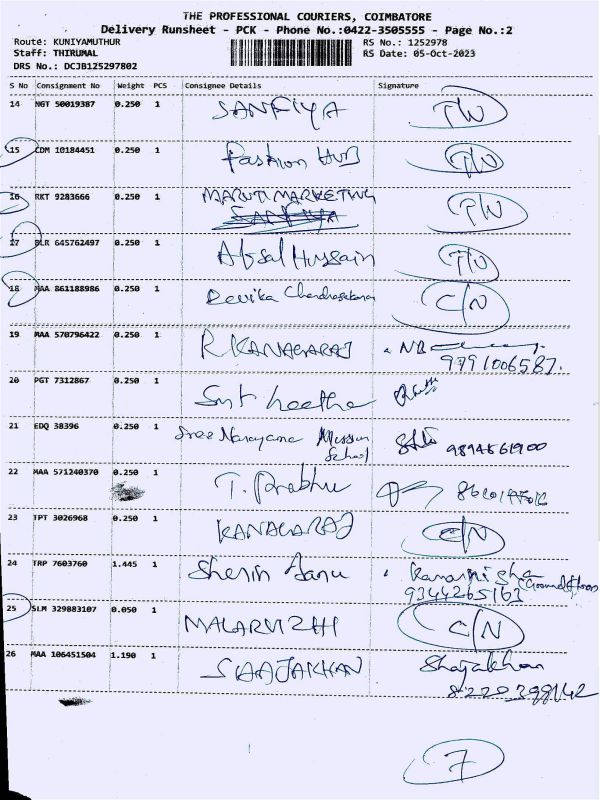 THE PROFESSIONAL COURIERS, COIMBATORE
Delivery Runsheet - PCK - Phone No.:0422-3505555 - Page No.:2
Route: KUNIYAMUTHUR RS No.: 1252978
Staff: THIRUMAL RS Date: 05-Oct-2023
DRS No.: DCJB125297802
S No Consignment No Weight PCS Consignee Details Signature
14 NGT 50019387 0.250 1 SANFIYA T/W
15 CDM 10184451 0.250 1 Fashion HUB T/W
16 RKT 9283666 0.250 1 MARUTI MARKETING T/W
SANFIYA
17 BLR 645762497 0.250 1 Afsal Hussain T/W
18 MAA 861188986 0.250 1 Devika Chandrasekaran C/N
19 MAA 570796422 0.250 1 R KANAGARAJ
9791006587.
20 PGT 7312867 0.250 1 Smt Leetha
21 EDQ 38396 0.250 1 Sree Narayana Mission
School
22 MAA 571240370 0.250 1 T. Prabhu
23 TPT 3026968 0.250 1 KANAGARAJ C/N
24 TRP 7603760 1.445 1 Sherin Banu
9344265163
25 SLM 329883107 0.050 1 MALARVIZHI C/N
26 MAA 106451504 1.190 1 SHAJAKHAN Shajakhan
7